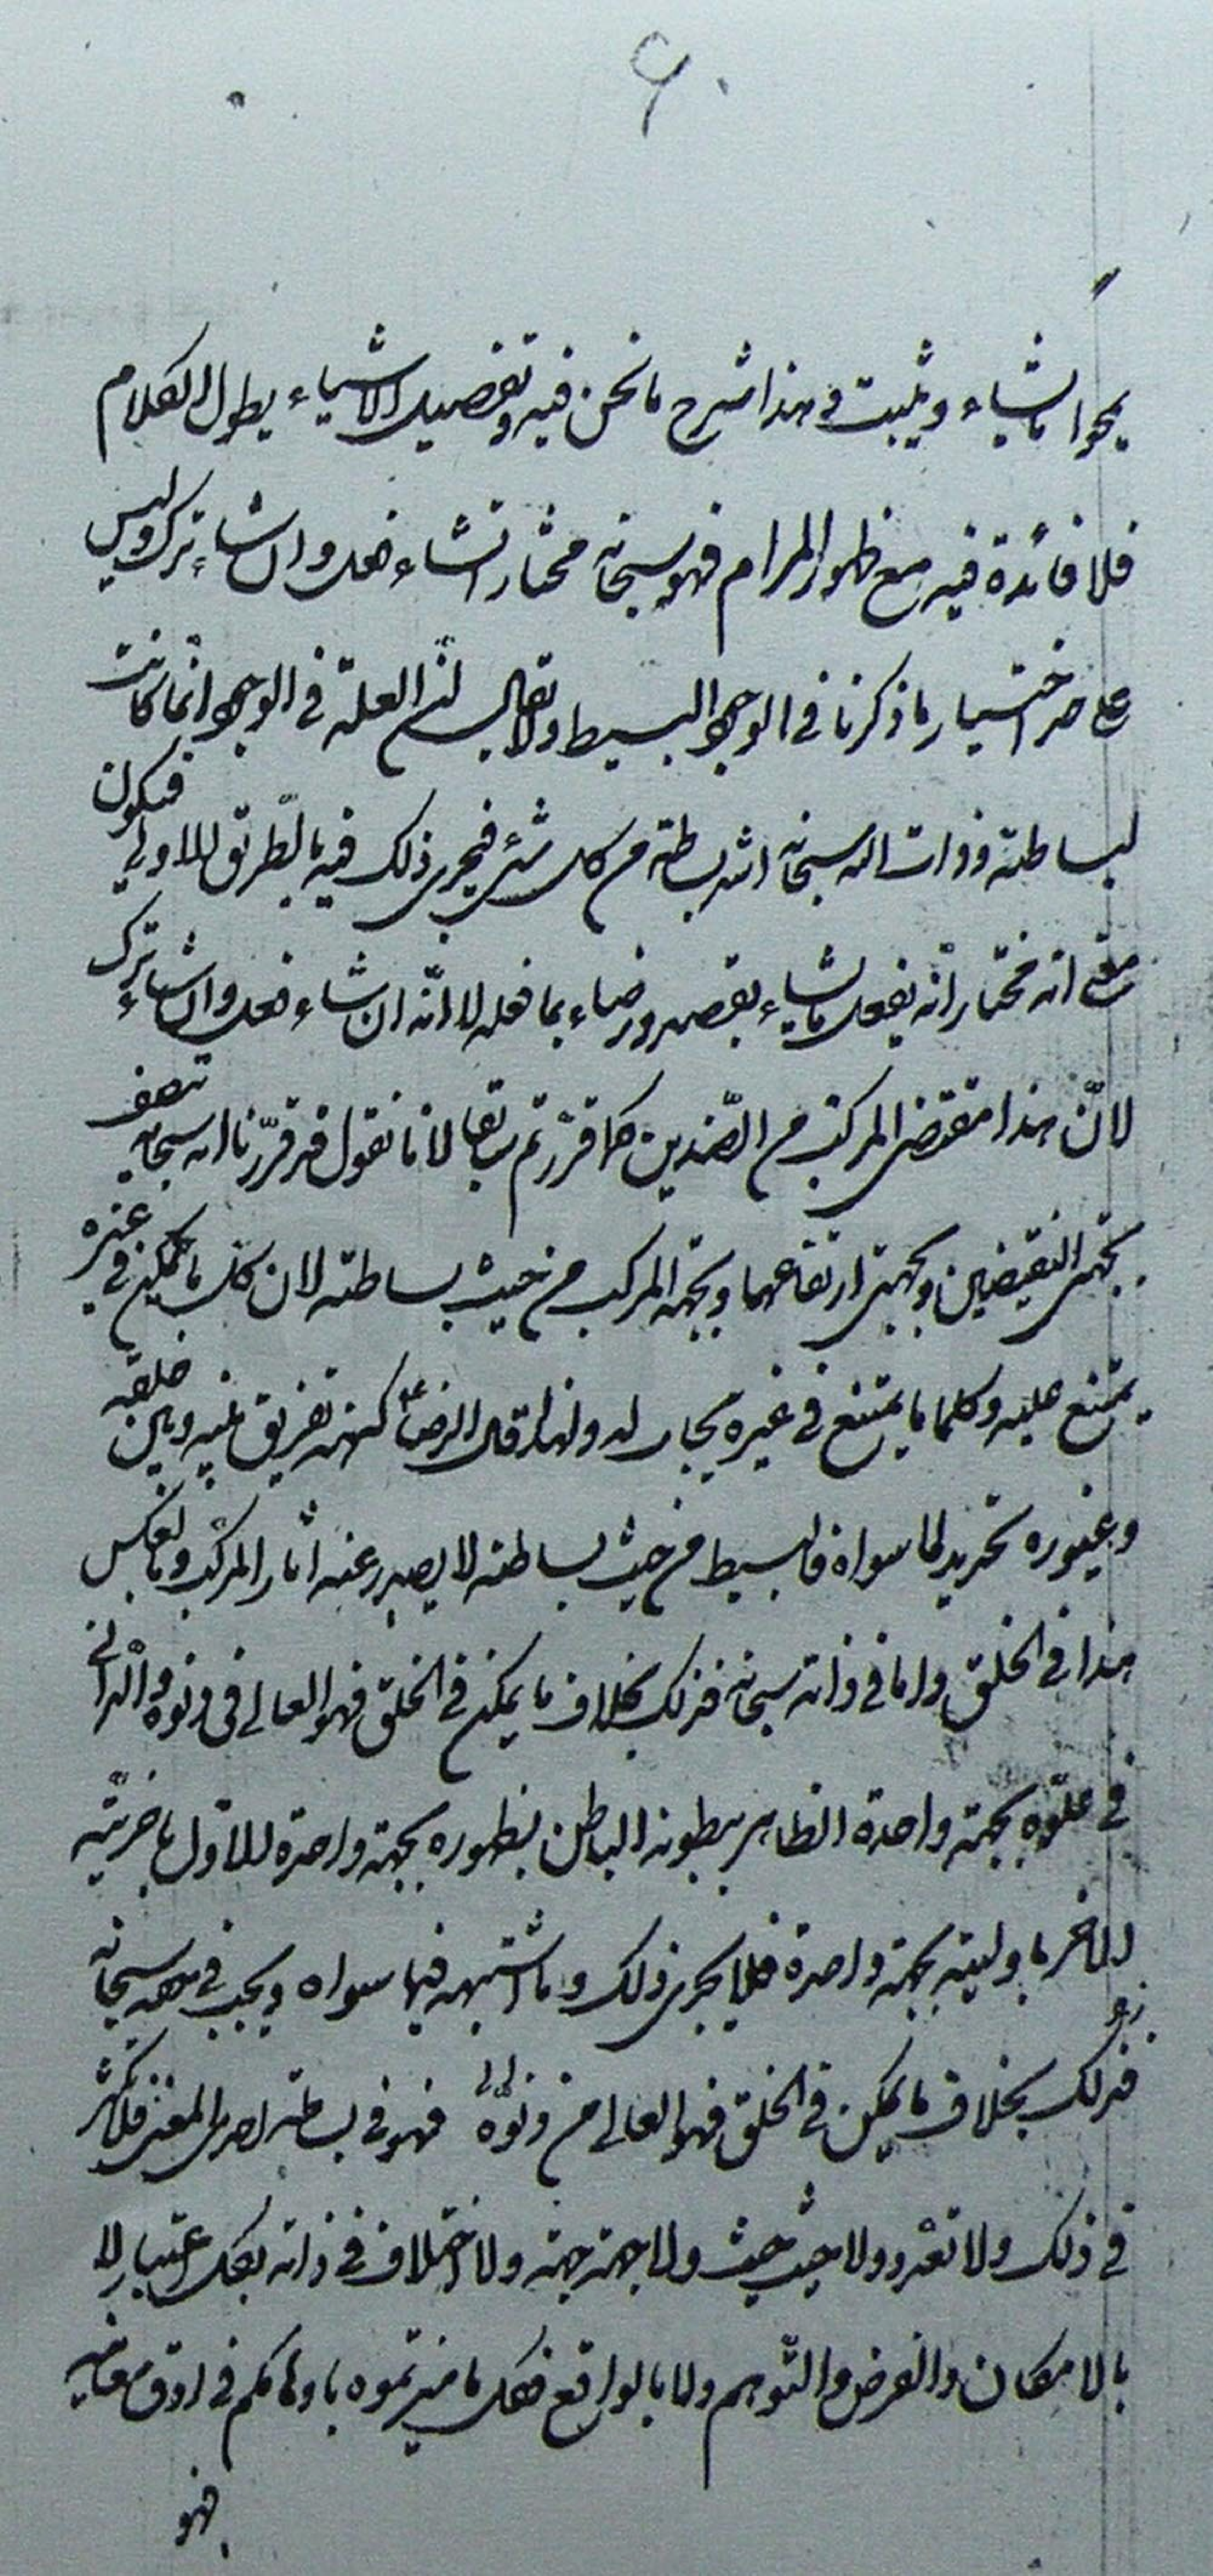 ۶۰
يمحوا ما يشاء ويثبت فى هذا شرح ما نحن فيه وتفصيل الاشياء يطول الكلام
فلا فائدة فيه مع ظهور المرام فهو سبحانه مختار ان شاء فعل وان شاء ترك وليس
على حد اختيار ما ذكرنا فى الوجود البسيط ولا يقال ان العلة فى الوجود انما كانت
لبساطته وذات الله سبحانه اشد بساطة من كل شئ فيجرى ذلك فيه بالطريق الاولى فيكون
معنى انه مختار انّه يفعل ما يشاء بقصد ورضاء بما فعله لا انّه ان شاء فعل وان شاء ترك
لانّ هذا مقتضى المركب من الضّدين كما قررتم سابقا لانا نقول قد قرّرنا انه سبحانه تتصف
بجهتى النقيضين وبجهتى ارتفاعهما وبجهة المركب من حيث بساطته لان كل ما يمكن فى غيره
يمتنع عليه وكلما يمتنع فى غيره يجب له ولهذا قال الرضا ع كنهه تفريق بينه وبين خلقه
وغيوره تحديد لما سواه فالبسيط من حيث بساطته لا يصدر عنه اثار المركب وبالعكس
هذا فى الخلق واما فى ذاته سبحانه فذلك بخلاف ما يمكن فى الخلق فهو العالى فى دنوه والدانى
فى علوّه بجهة واحدة الظاهر ببطونه الباطن بظهوره بجهة واحدة الاول باخريّته
الاخر باوليته بجهة واحدة فلا يجرى ذلك وما اشبهه فيما سواه ويجب فى حقه سبحانه
فذلك بخلاف ما يمكن فى الخلق فهو العالى من دنوّه فهو فى بساطته احدى المعنى فلا تكثر
فى ذلك ولا تعدد ولا حيث حيث ولا جهة جهة ولا اختلاف فى ذاته بكل اعتبار لا
بالامكان والفرض والتّوهم ولا بالواقع فكل ما ميزتموه باوهامكم فى ادق معانيه
فهو